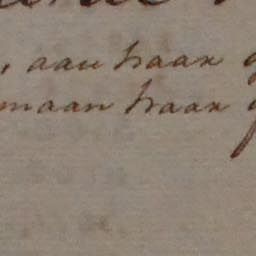 , aan haar
maan haar